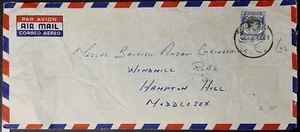 PAR AVION
AIR MAIL
CORREO AEREO
British
Engineering
Windmill Road
Hampton Hill
Middlesex